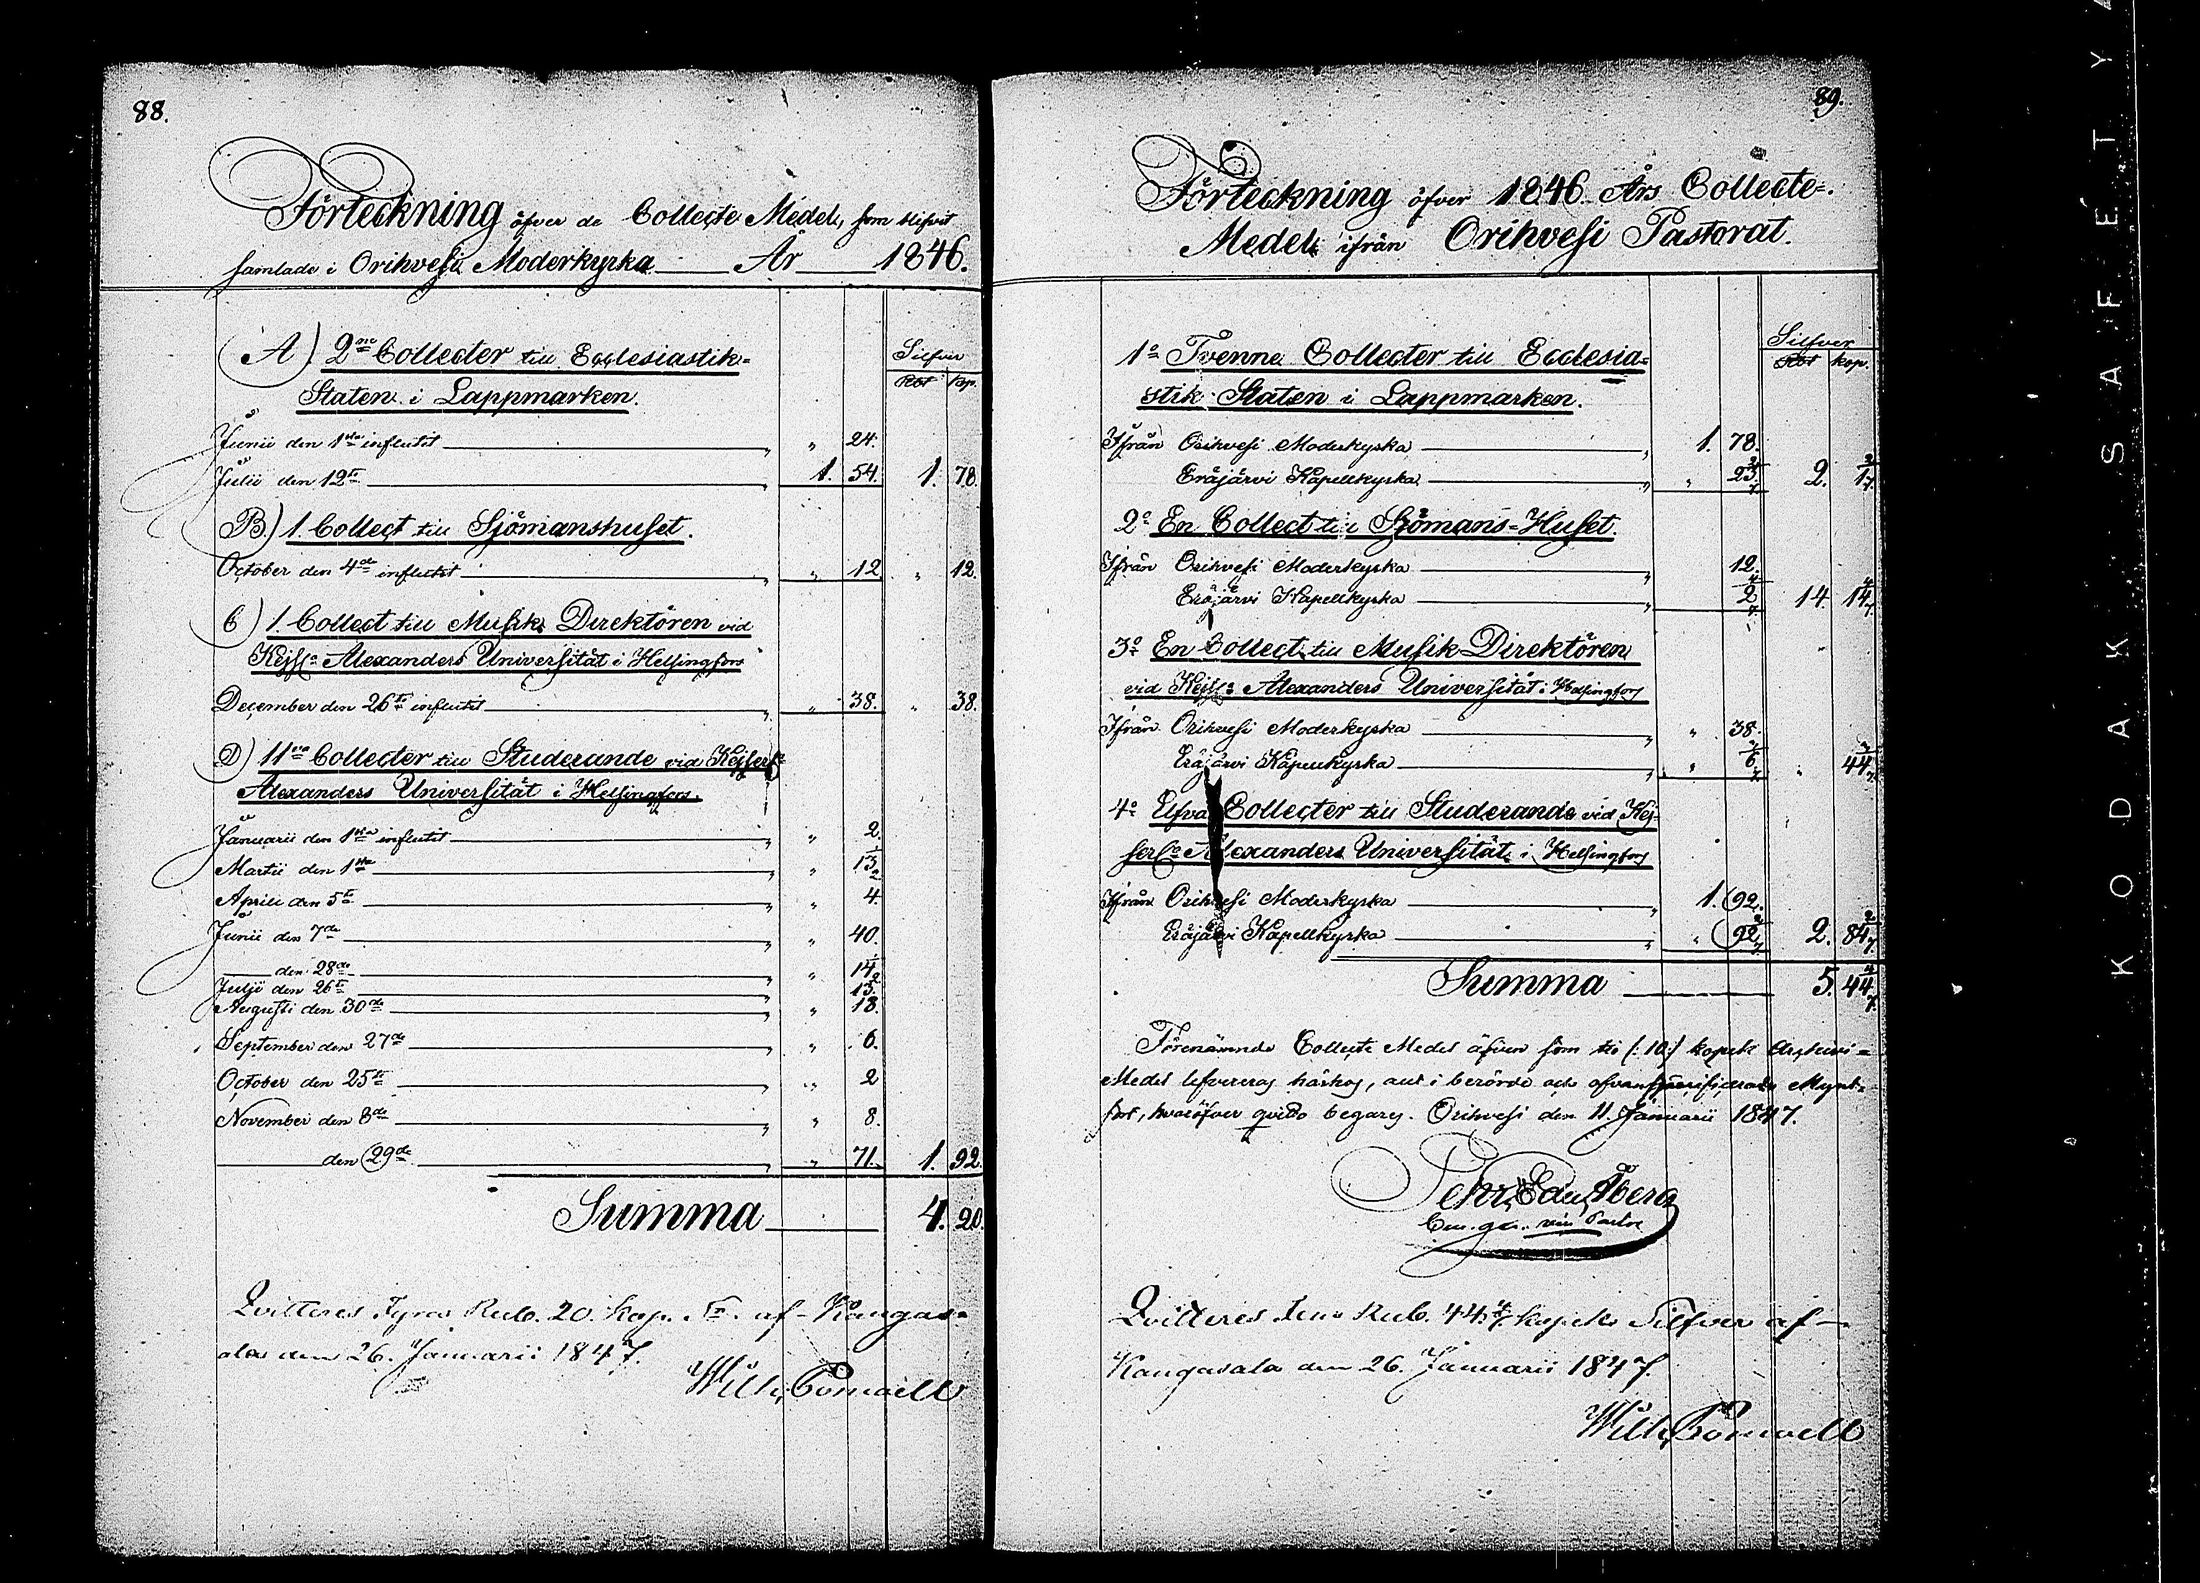 88.
Förteckning öfver de Collecte Medel, som blifvit
samlade i Orihvesi Moderkyrka År 1846.
A) 2ne Collecter till Ecclesiastik-
Staten i Lappmarken.
Silfver
Rbl kop.
Junii den 1sta influtit " 24.
Julii den 12te 1. 54. 1. 78.
B.) 1. Collect till Sjömanshuset.
October den 4de influtit " 12. " 12.
C) 1. Collect till Musik Direktören vid
Kejsla Alexanders Universität i Helsingfors
December den 26te influtit " 38. " 38.
D) 11va Collecter till Studerande vid Kejserla
Alexanders Universität i Helsingfors.
Januarii den 1sta influtit " 2.
Martii den 1sta " 13 1/2
Aprili den 5te " 4.
Junii den 7de " 40.
den 28de " 14 1/2
Julii den 26te " 13.
Augusti den 30de " 18.
September den 27de " 6.
October den 25te " 2
November den 8de " 8.
den 29de " 71. 1. 92.
Summa 4. 20.
Qvitteras Fyra Rub. 20. kop. Sr. af Kangas-
ala den 26. Januarii 1847.
89.
Förteckning öfver 1846 Års Collecte-
Medel ifrån Orihvesi Pastorat.
Silfver
Rbl kop.
1o Tvenne Collecter till Ecclesia-
stik Staten i Lappmarken.
Ifrån Orihvesi Moderkyrka 1. 78.
Eräjärvi Kapellkyrka " 23 2/7 2. 1 2/7
2o En Collect till Sjömans-Huset.
Ifrån Orihvesi Moderkyrka 12.
Eräjärvi Kapellkyrka 2 4/7 14. 14 4/7
3o En Collect till Musik Direktören
vid Kejsla Alexanders Universität i Helsingfors
Ifrån Orihvesi Moderkyrka " 38.
Eräjärvi Kapellkyrka " 6 3/7 " 44 3/7
4o Elfva Collecter till Studerande vid Kej-
serla Alexanders Universität i Helsingfors
Ifrån Orihvesi Moderkyrka 1. 92.
Eräjärvi Kapellkyrka " 92 2/7 2. 84 2/7
Summa 5. 44 4/7
Förenämnde Collecte Medel äfven som tio (:10:) kopek Arkivi-
Medel lefvereras härhos, allt i berörde och ofvanspecificerade Mynt-
sort, hvaröfver qvitto begäres. Orihvesi den 11 Januarii 1847.
Pehr Edv.
Qvitteras Fem Rub. 44 4/7 kopek Silfver af
Kangasala den 26. Januarii 1847.
KODAK SAFETY